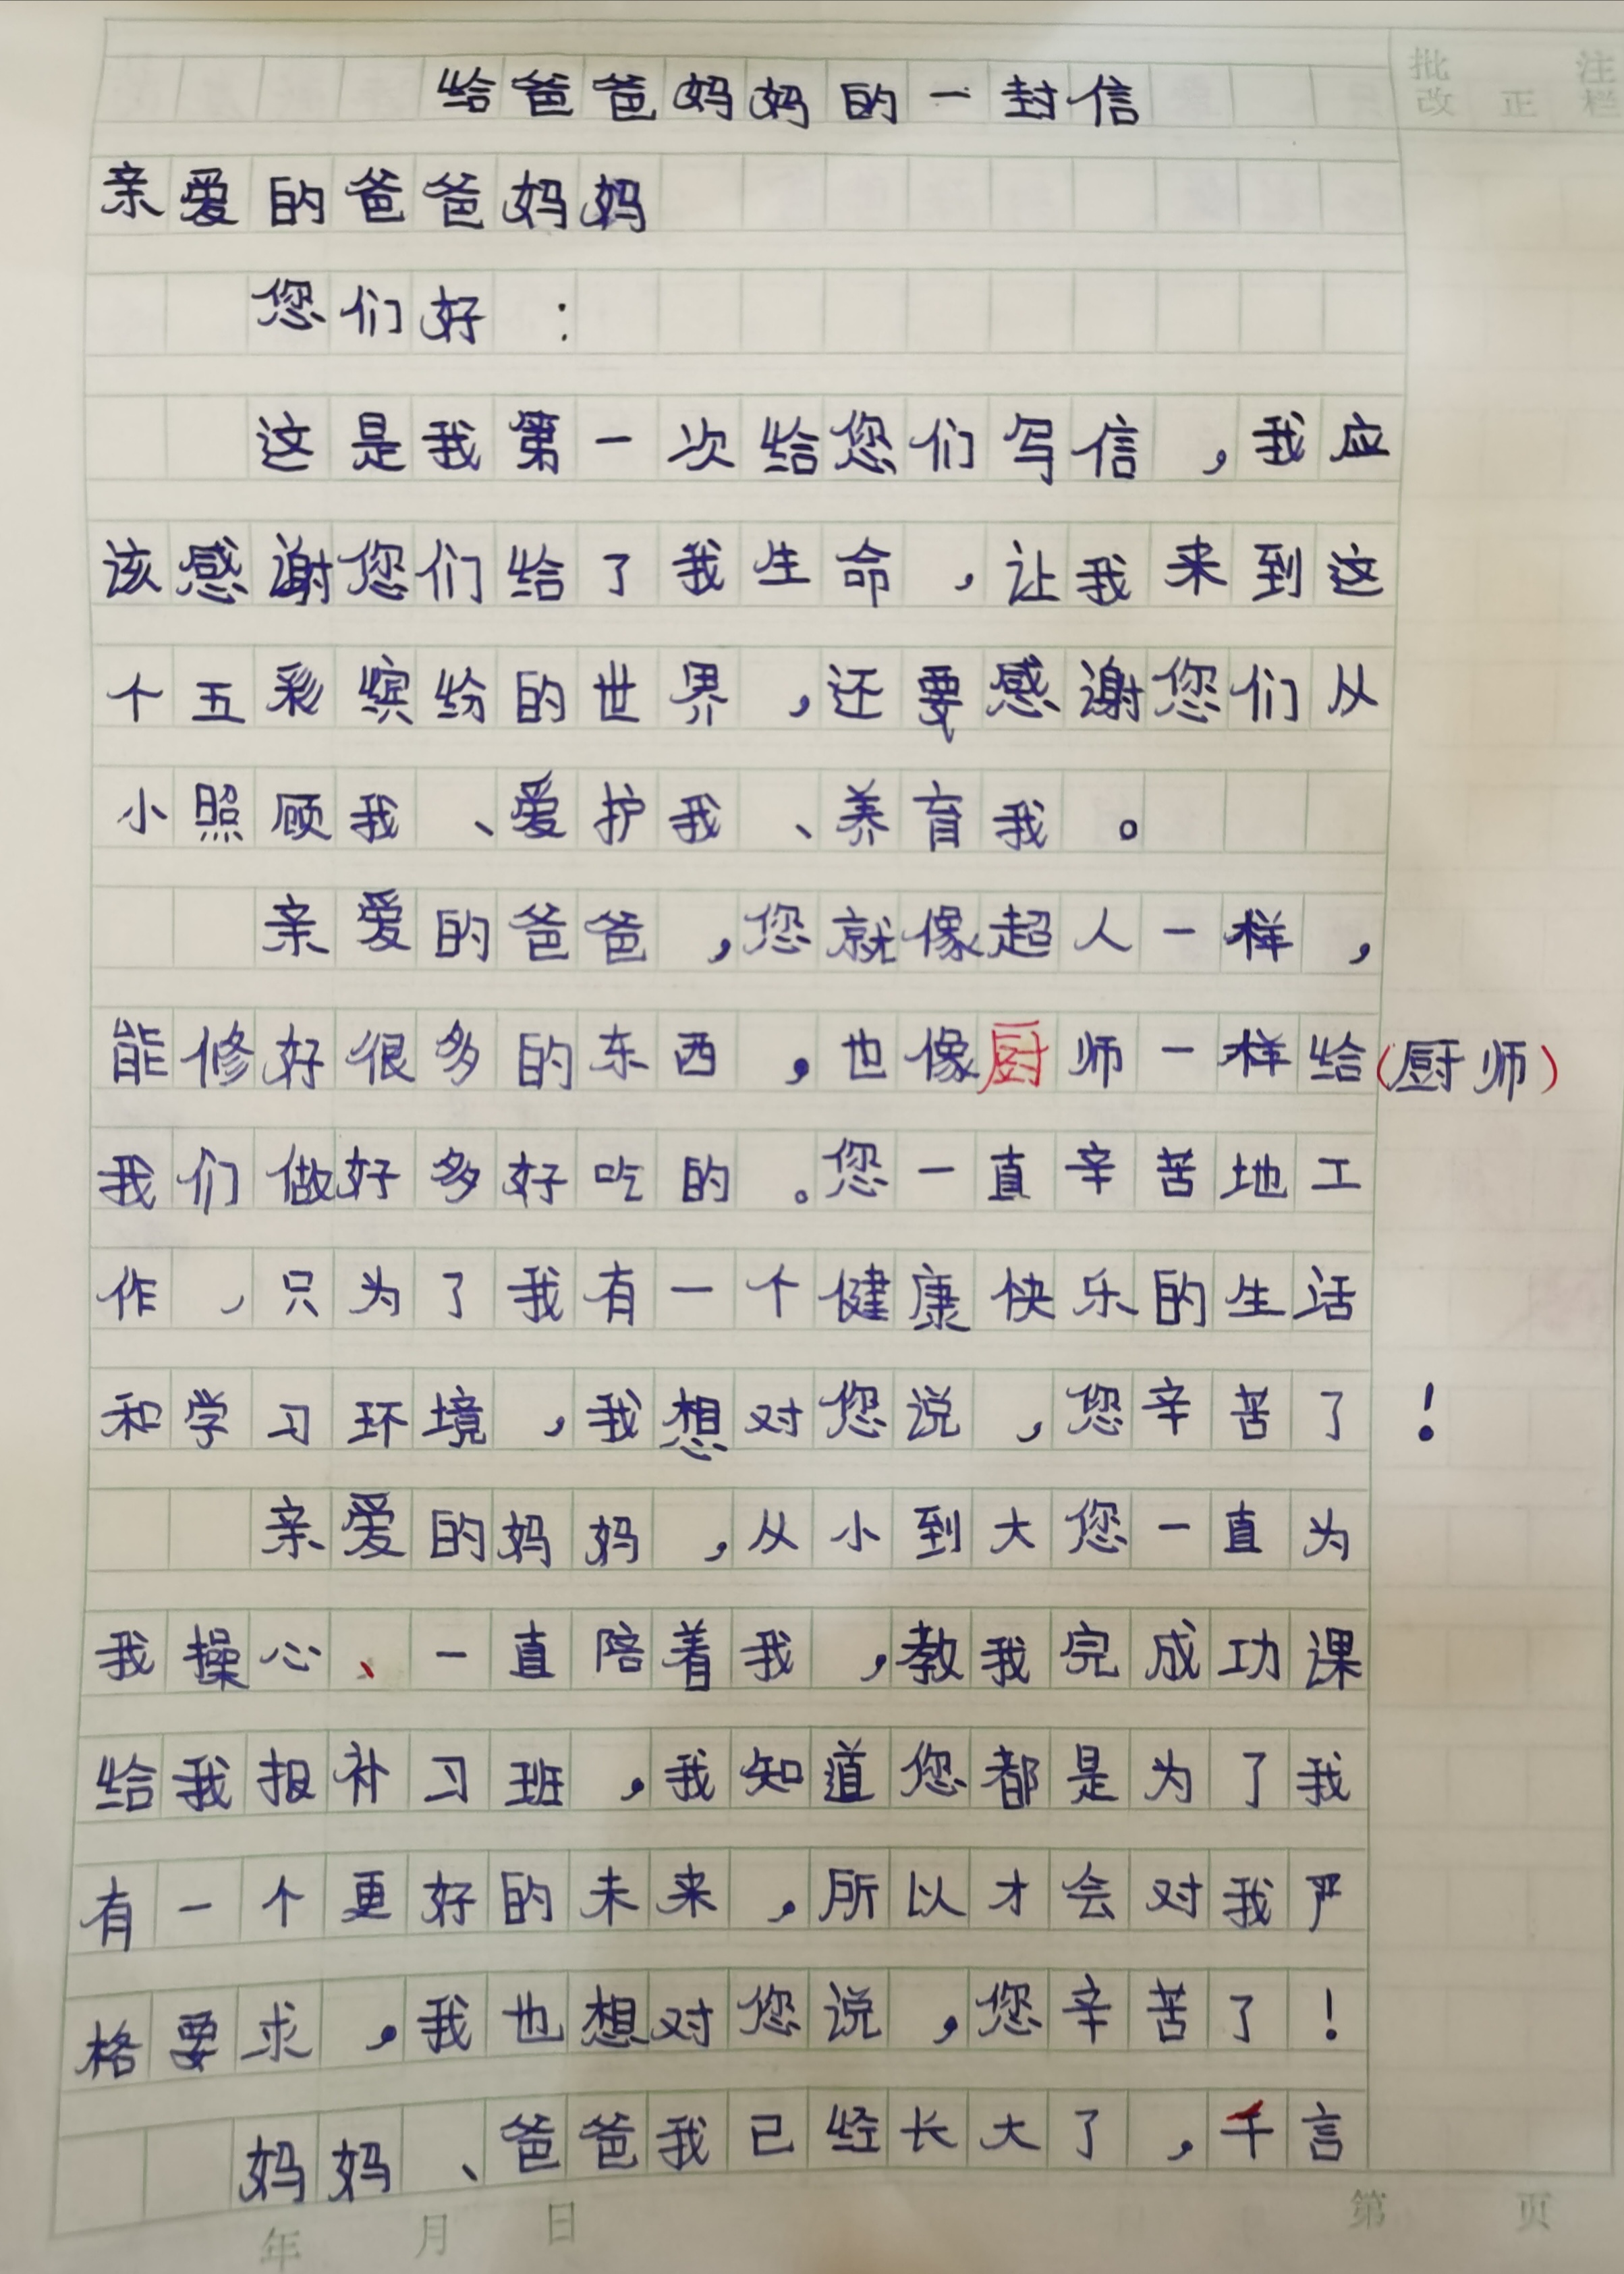 批 注
改 正 栏
给爸爸妈妈的一封信
亲爱的爸爸妈妈
您们好:
这是我第一次给您们写信,我应
该感谢您们给了我生命,让我来到这
个五彩缤纷的世界,还要感谢您们从
小照顾我、爱护我、养育我。
亲爱的爸爸,您就像超人一样,
能修好很多的东西,也像厨师一样给(厨师)
我们做好多好吃的。您一直辛苦地工
作,只为了我有一个健康快乐的生活
和学习环境,我想对您说,您辛苦了!
亲爱的妈妈,从小到大您一直为
我操心、一直陪着我,教我完成功课
给我报补习班,我知道您都是为了我
有一个更好的未来,所以才会对我严
格要求,我也想对您说,您辛苦了!
妈妈、爸爸我已经长大了,千言
年 月 日 第 页